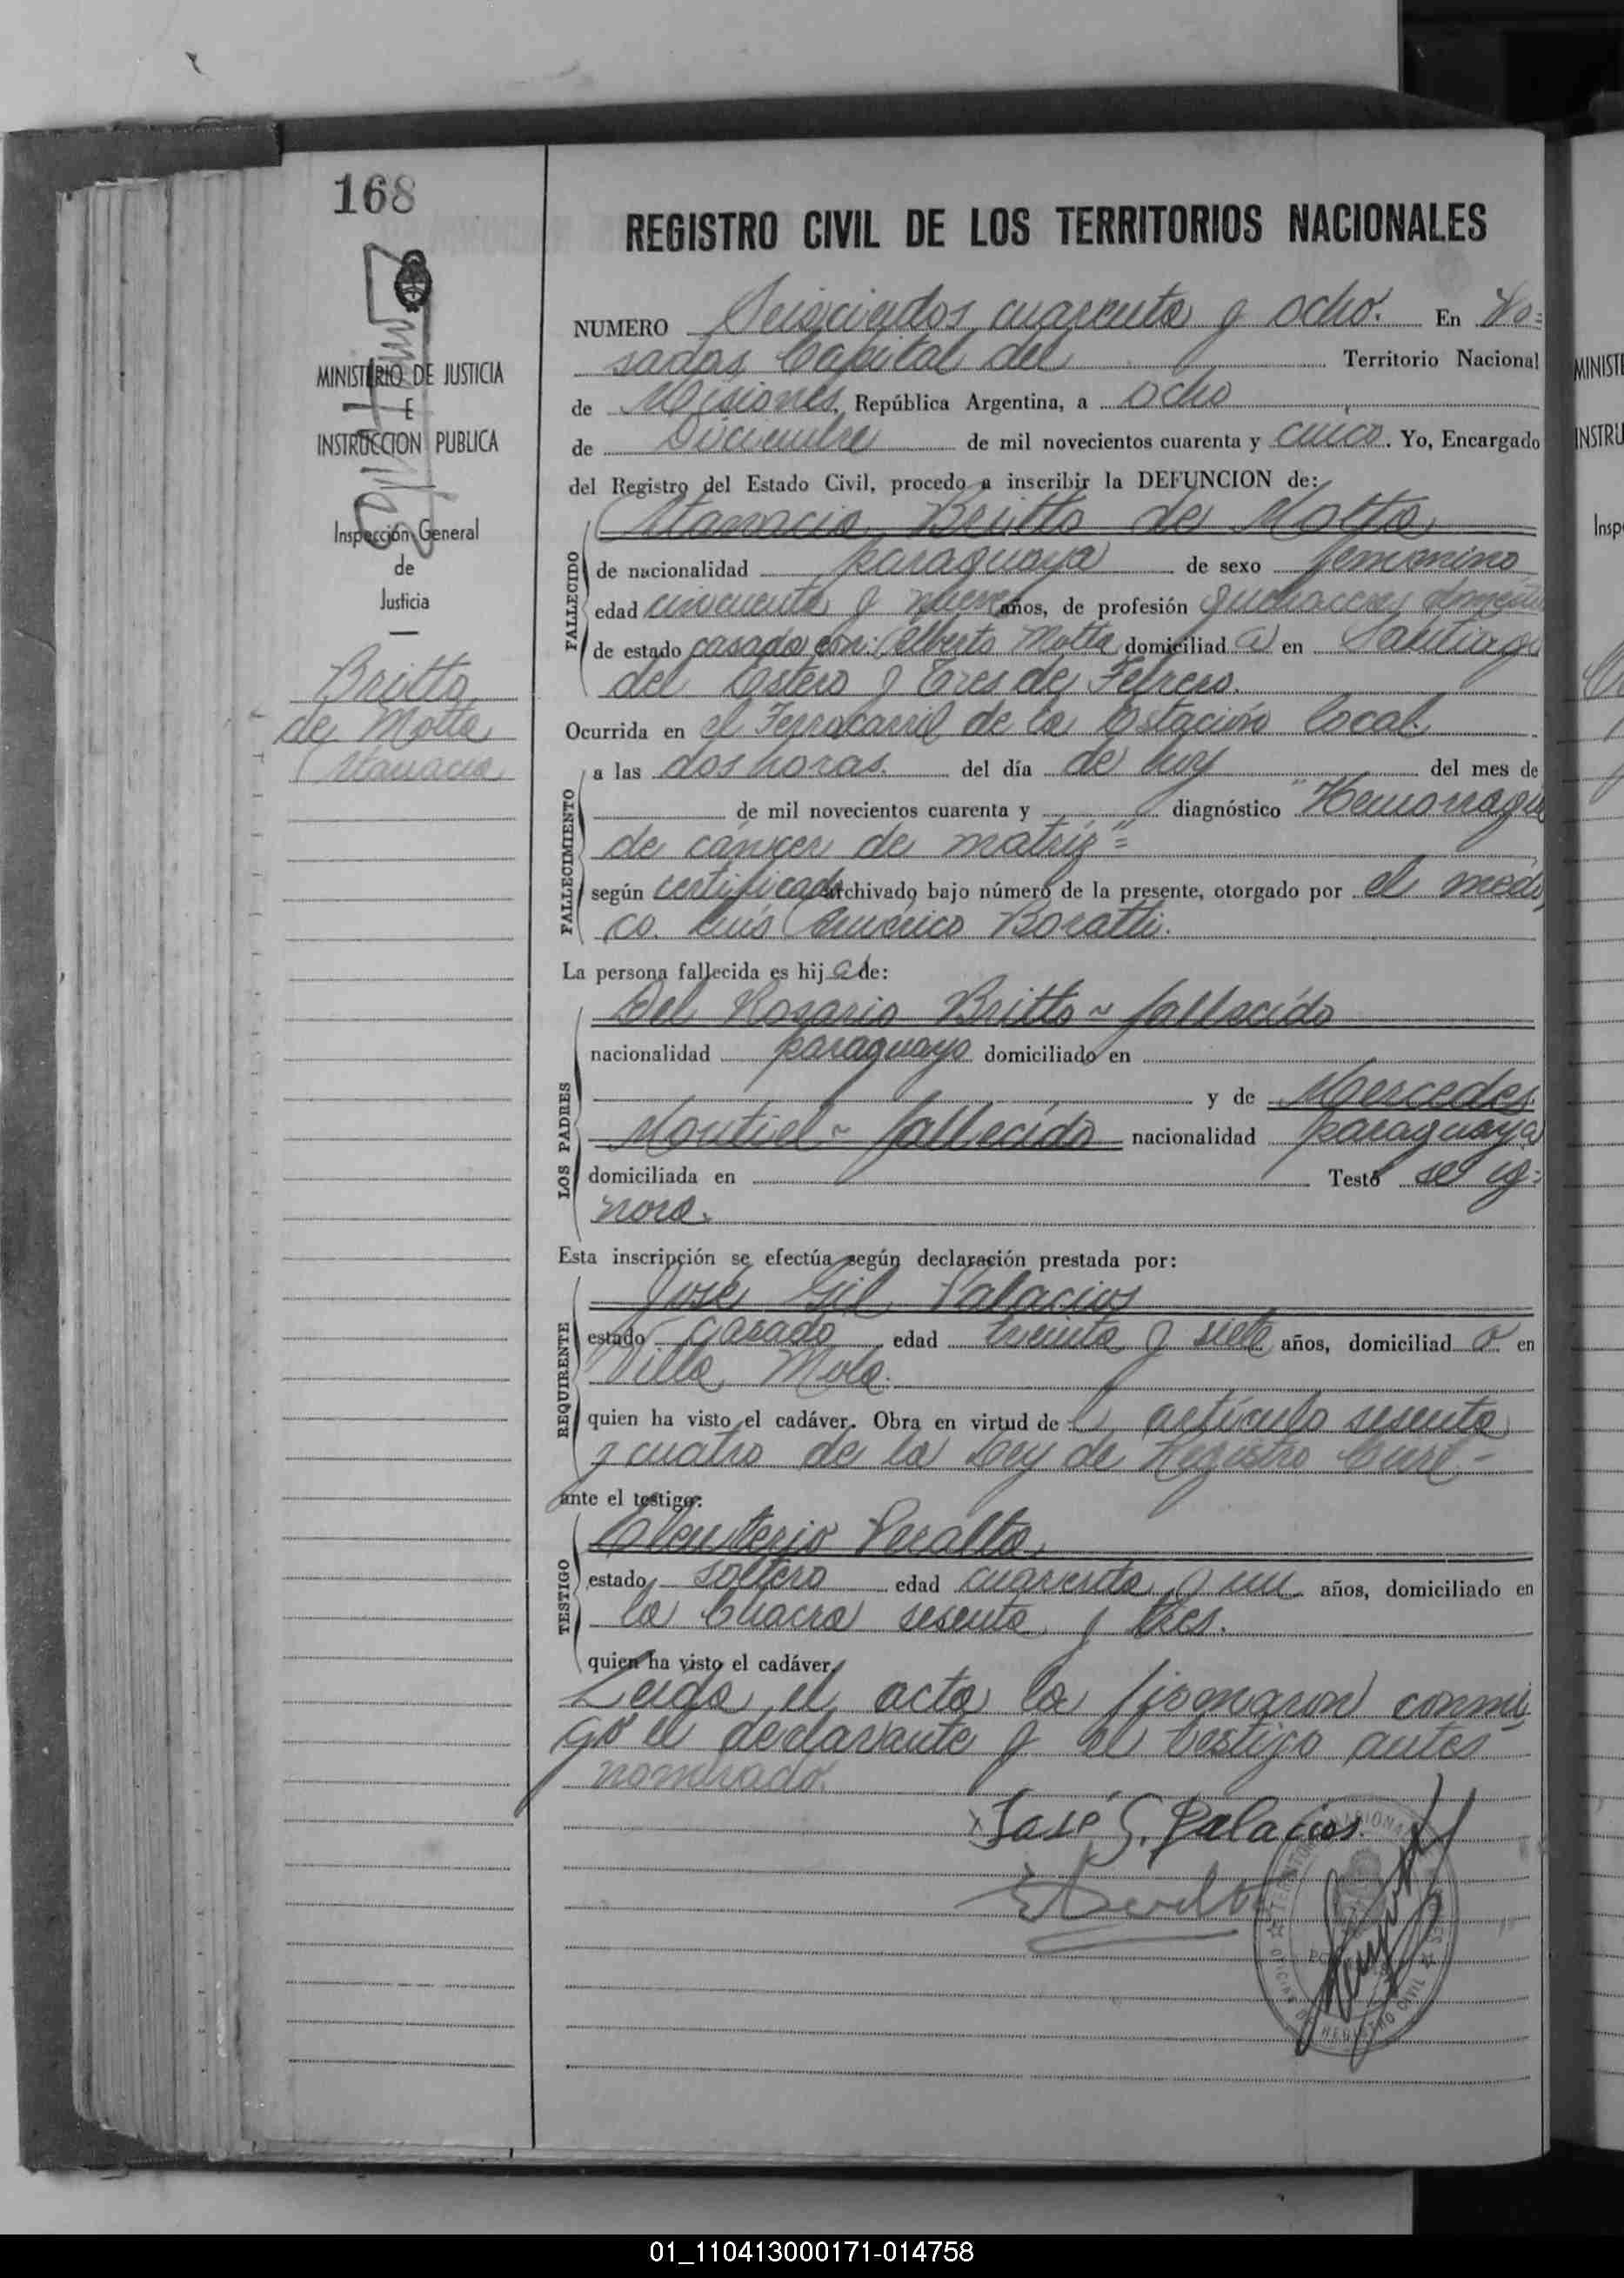 168
REGISTRO CIVIL DE LOS TERRITORIOS NACIONALES
MINISTERIO DE JUSTICIA
E
INSTRUCCION PUBLICA
Inspección General
de
Justicia
Britto
de Motta
NUMERO Seiscientos cuarenta y ocho. En Po=
sadas Capital del Territorio Nacional
de Misiones, República Argentina, a ocho
de Diciembre de mil novecientos cuarenta y cinco. Yo, Encargado
del Registro del Estado Civil, procedo a inscribir la DEFUNCION de:
Britto de Motta
FALLECIDO
de nacionalidad paraguaya de sexo femenino
edad cincuenta y nueve años, de profesión quehaceres
de estado casada con: Alberto Motta domiciliad a en Santiago
del Estero y Tres de Febrero.
Ocurrida en el Ferrocarril de la Estación local.
FALLECIMIENTO
a las dos horas. del día de hoy del mes de
de mil novecientos cuarenta y diagnóstico "Hemorragia
de cáncer de matriz"=
según certificado archivado bajo número de la presente, otorgado por el médi
co. Luis Américo Boratti.
La persona fallecida es hij a de:
LOS PADRES
Del Rosario Britto ~ fallecido
nacionalidad paraguayo domiciliado en
y de Mercedes
Montiel ~ fallecida nacionalidad paraguaya
domiciliada en Testó se ig=
nora.
Esta inscripción se efectúa según declaración prestada por:
REQUIRENTE
José Gil Palacios
estado casado edad treinta y siete años, domiciliad o en
Villa Mola.
quien ha visto el cadáver. Obra en virtud de l artículo sesenta
y cuatro de la Ley de Registro Civil-
ante el testigo:
TESTIGO
Eleuterio Peralta
estado soltero edad cuarenta y un años, domiciliado en
la Chacra sesenta y tres.
quien ha visto el cadáver.
Leida el acta la firmaron conmi
go el declarante y el testigo antes
nombrado.
José G. Palacios.
REGISTRO CIVIL
01_110413000171-014758